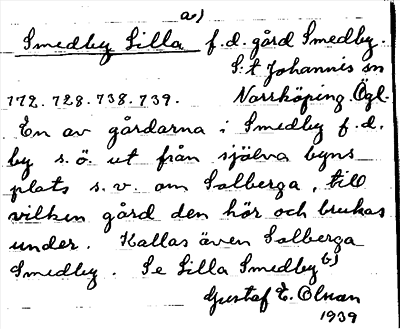 a)
Smedby Lilla f.d. gård Smedby.
S:t Johannis sn
772.728.738.739. Norrköping. Ögl.
En av gårdarna i Smedby f.d.
by s.ö. ut från själva byns
plats s.v. om Salberga, till
vilken gård den hör och brukas
under. Kallas även Salberga
Smedby. Se Lilla Smedby b)
Gustaf E. Olsson
1939